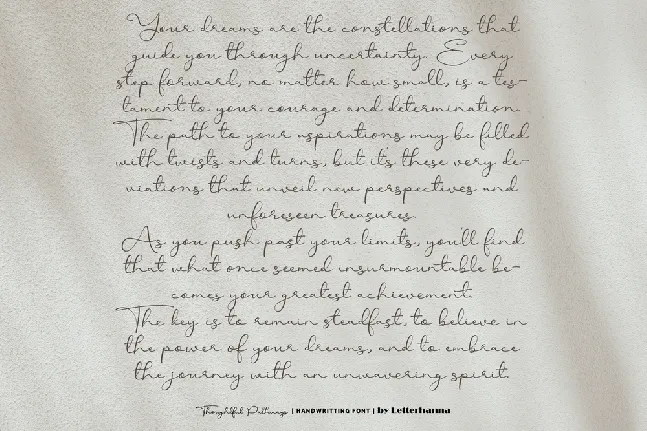 Your dreams are the constellations that
guide you through uncertainty. Every
step forward, no matter how small, is a tes-
tament to your courage and determination.
The path to your aspirations may be filled
with twists and turns, but it's these very de-
viations that unveil new perspectives and
unforeseen treasures.
As you push past your limits, you'll find
that what once seemed insurmountable be-
comes your greatest achievement.
The key is to remain steadfast, to believe in
the power of your dreams, and to embrace
the journey with an unwavering spirit.
Thoughtful Pathways | HANDWRITTING FONT | by Letterhanna